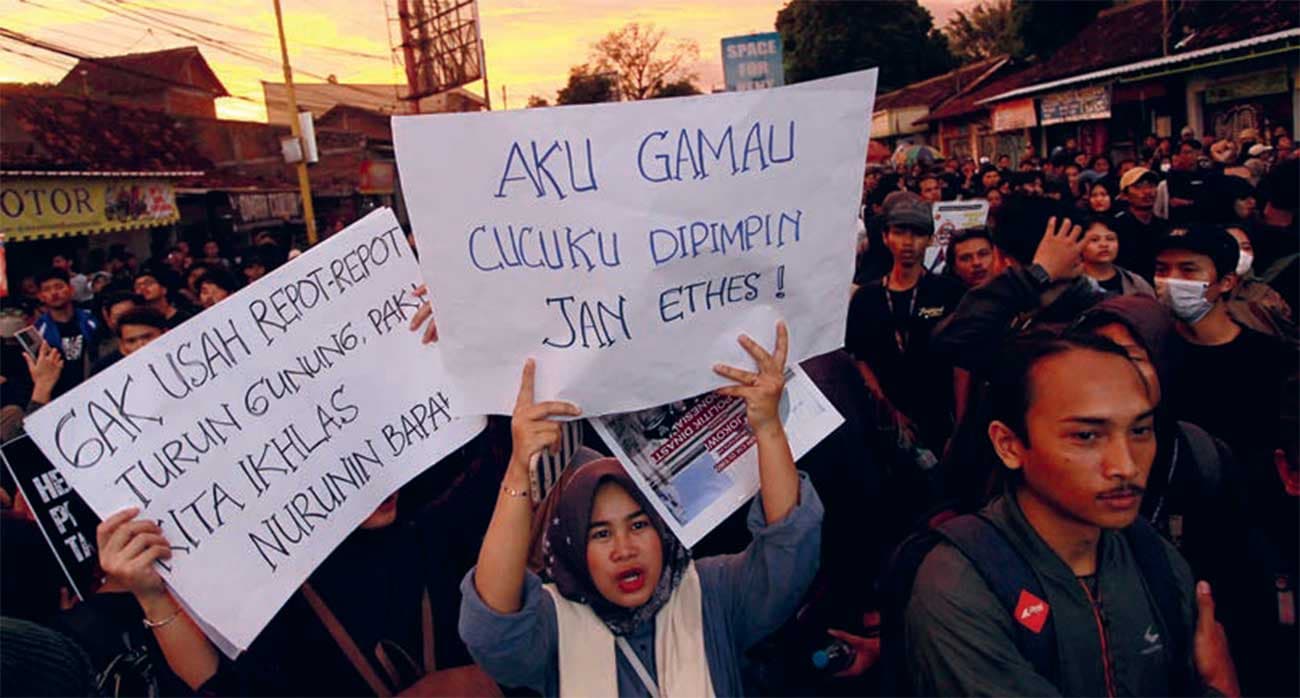 AKU GAMAU
CUCUKU DIPIMPIN
JAN ETHES !
GAK USAH REPOT-REPOT
TURUN GUNUNG, PAK
KITA IKHLAS
NURUNIN BAPAK
SPACE
FOR
OTOR
POLITIK DINASTI
JOKOWI